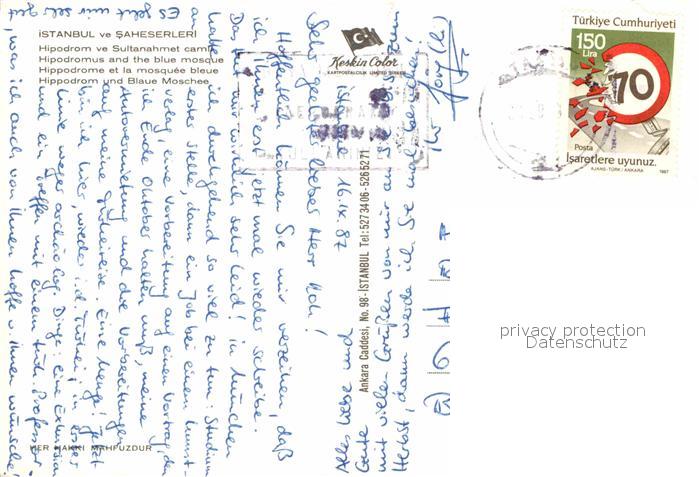 İSTANBUL ve ŞAHESERLERİ
Hipodrom ve Sultanahmet camii
Hipodromus and the blue mosque
Hippodrome et la mosquée bleue
Hippodrom und Blaue Moschee
Keskin Color
KARTPOSTALCILIK LIMITED ŞİRKETİ
Ankara Caddesi, No. 98-İSTANBUL Tel: 527 34 06 - 526 52 71
HER HAKKI MAHFUZDUR
Türkiye Cumhuriyeti
150
Lira
70
Posta
İşaretlere uyunuz.
AJANS-TÜRK / ANKARA
1987
privacy protection
Datenschutz
16.IX.87
Sehr geehrter, lieber Herr Koh!
Hoffentlich können Sie mir verzeihen, daß
ich Ihnen erst jetzt mal wieder schreibe.
Das tut mir wirklich sehr leid! In München
hatte ich durchgehend so viel zu tun: Studium
an erster Stelle, dann ein Job bei einem Kunst-
verlag, eine Vorbereitung auf einen Vortrag, den
ich Ende Oktober halten muß, meine
Autovermietung und die Vorbereitungen
auf meine Türkeireise. Eine Menge! Jetzt
bin ich hier, wieder i.d. Türkei, in erster
Linie wegen archäolog. Dinge: eine Exkursion
und ein Treffen mit einem türk. Professor.
Es geht mir sehr gut,
was ich auch von Ihnen hoffe u. Ihnen wünsche!
Alles Liebe und
Gute
mit vielen Grüßen von mir aus bis zum
Herbst, dann werde ich Sie mal besuchen!
Ihr Jörg